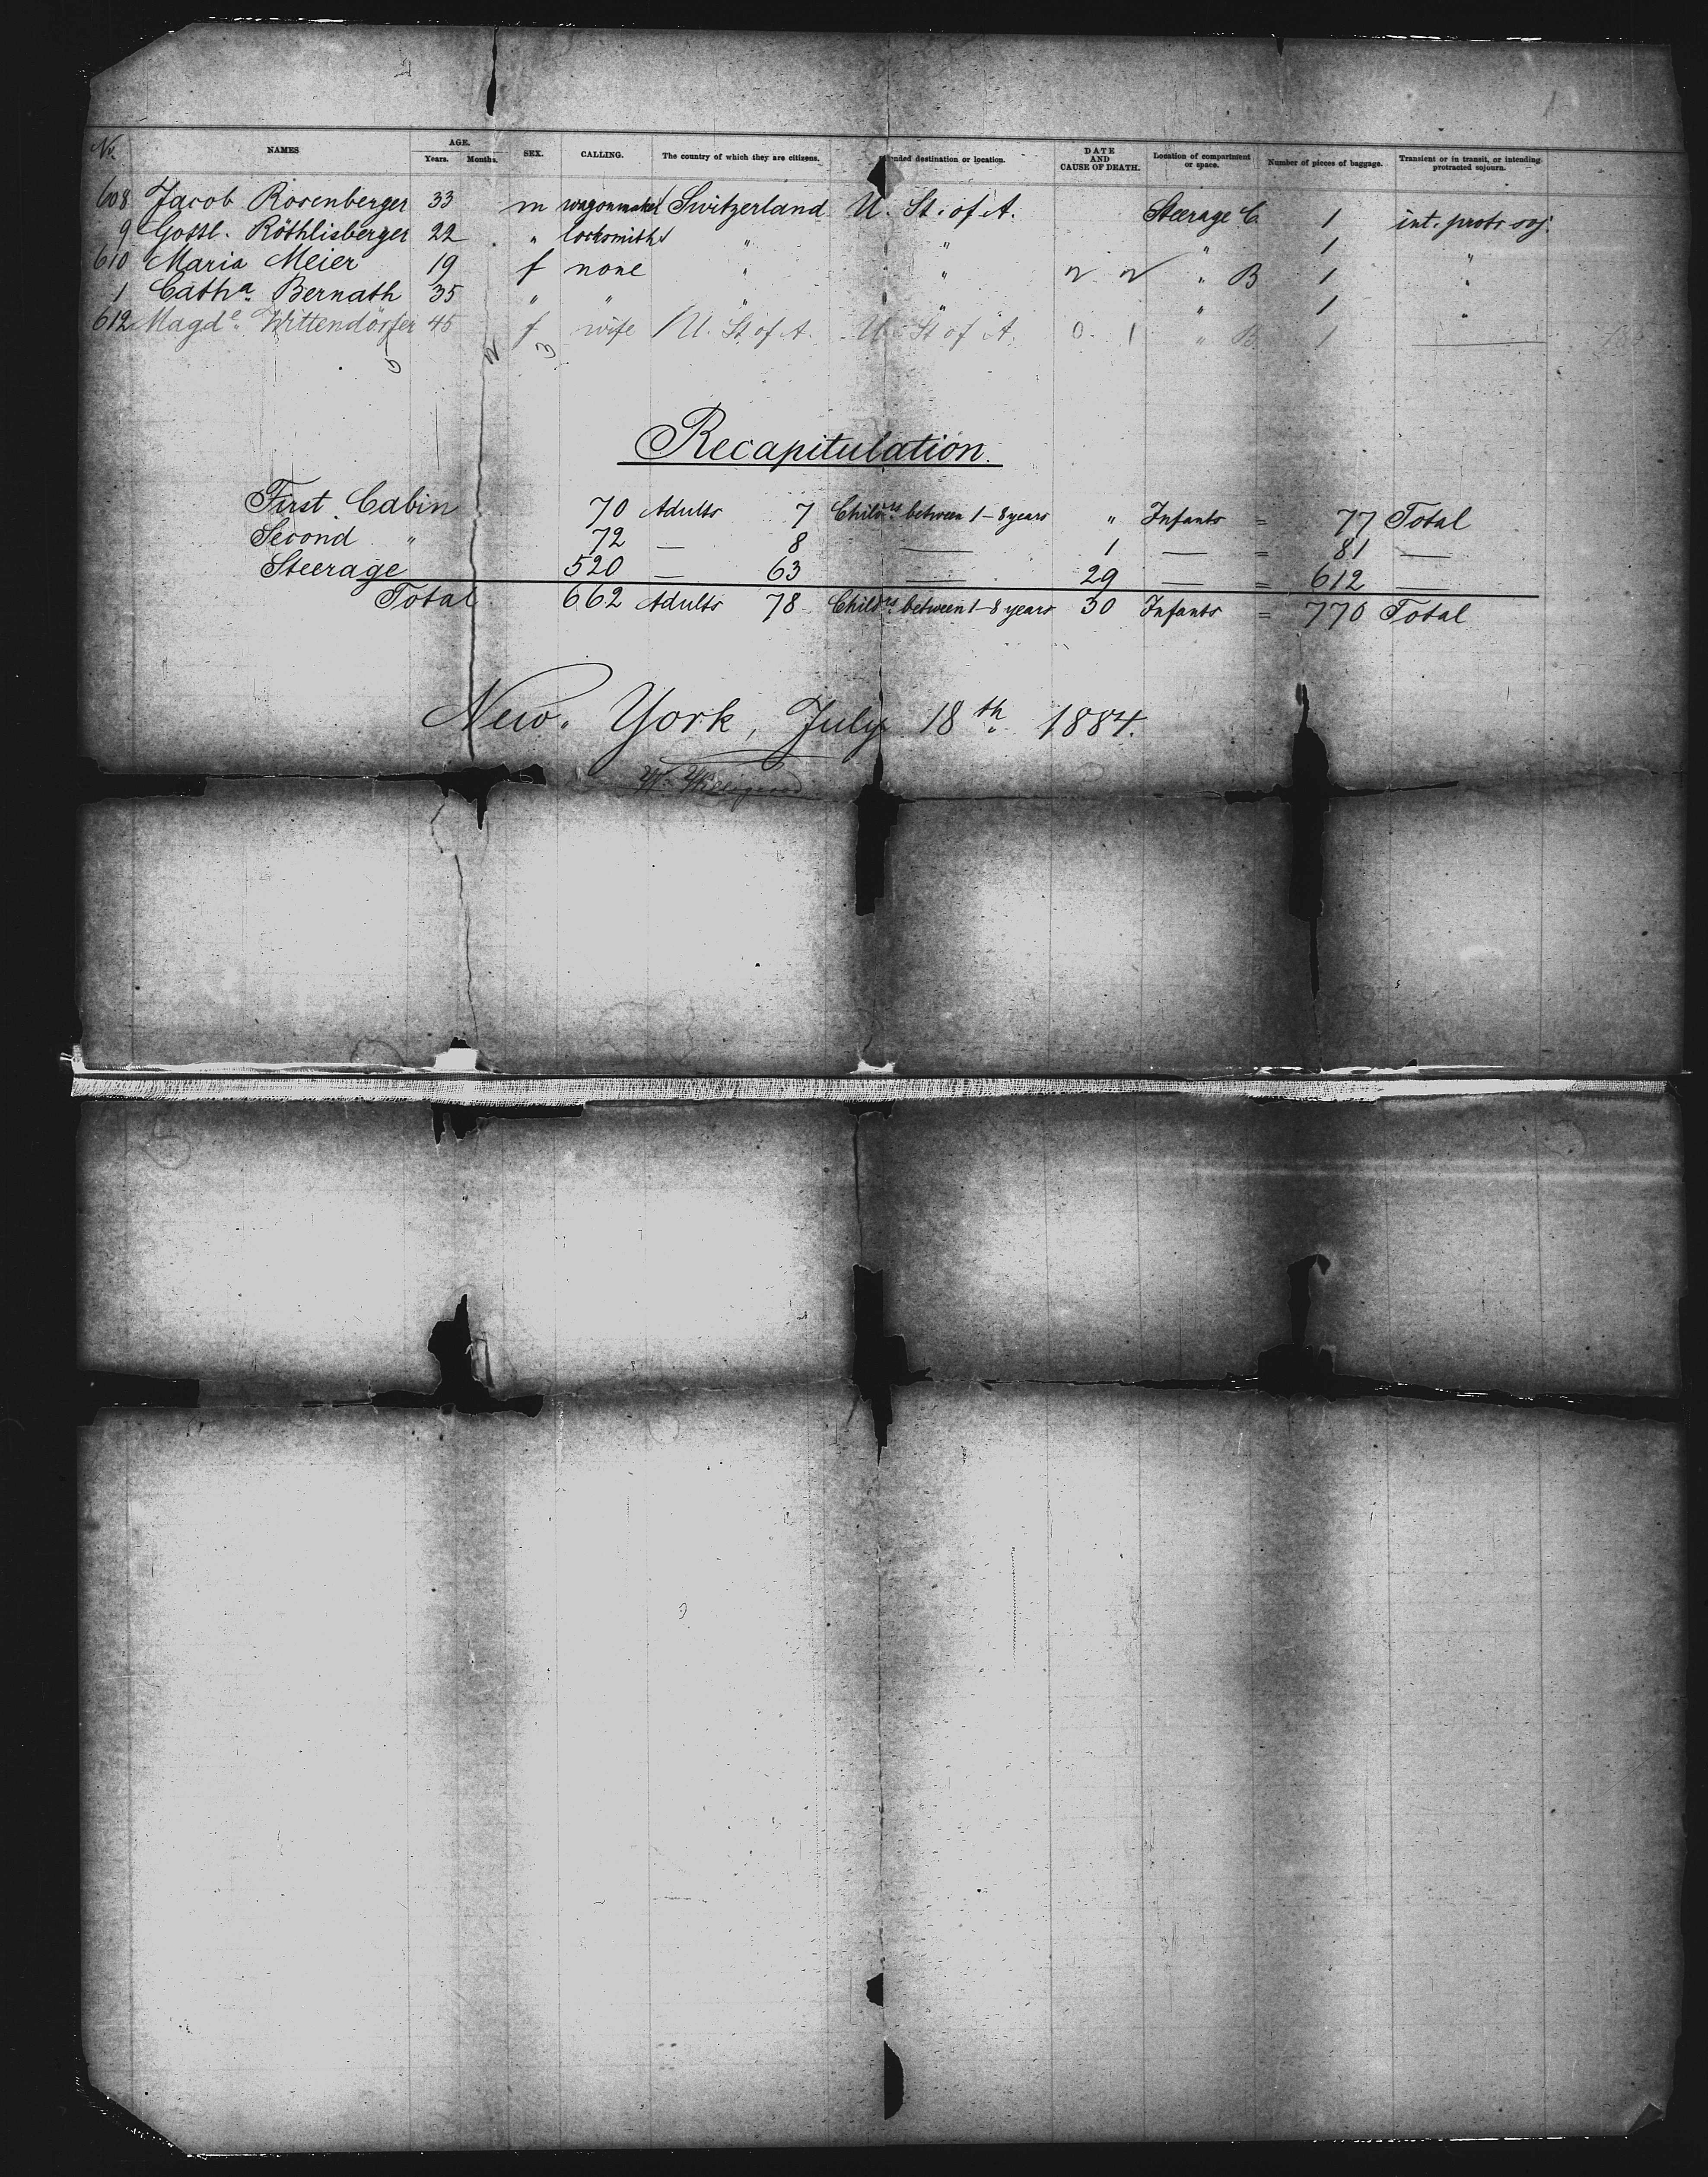 No. NAMES. AGE. Years. Months. SEX. CALLING. The country of which they are citizens. ended destination or location. DATE AND CAUSE OF DEATH. Location of compartment or space. Number of pieces of baggage. Transient or in transit, or intending protracted sojourn.
608 Jacob Rosenberger 33 m wagonmaker Switzerland U. St. of A. Steerage C. 1 int. protr. soj.
9 Gottl. Röthlisberger 22 " locksmith " " " 1 "
610 Maria Meier 19 f none " " " B 1 "
1 Catha. Bernath 35 " " " 1 "
612 Magde. Wittendörfer 45 f wife U. St. of A. U. St. of A. 0 1 " B 1 —
Recapitulation.
First Cabin 70 Adults 7 Childrs. between 1-8 years " Infants = 77 Total
Second " 72 — 8 — 1 — = 81 —
Steerage 520 — 63 — 29 — = 612 —
Total 662 Adults 78 Childrs. between 1-8 years 30 Infants = 770 Total
New York, July 18th. 1884.